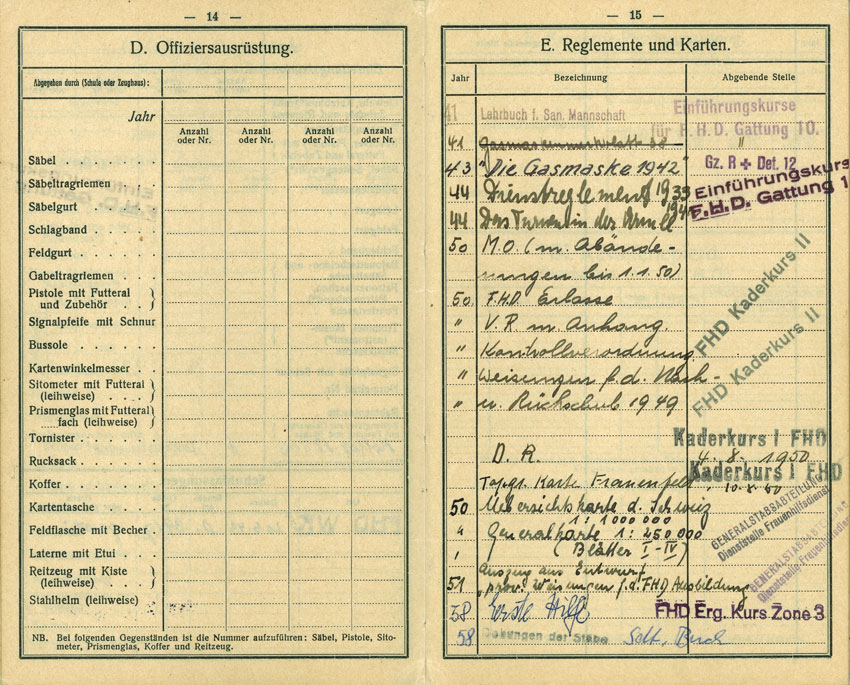 — 14 —
D. Offiziersausrüstung.
Abgegeben durch (Schule oder Zeughaus):
Jahr
Anzahl oder Nr. Anzahl oder Nr. Anzahl oder Nr. Anzahl oder Nr.
Säbel
Säbeltragriemen
Säbelgurt
Schlagband
Feldgurt
Gabeltragriemen
Pistole mit Futteral
und Zubehör
Signalpfeife mit Schnur
Bussole
Kartenwinkelmesser
Sitometer mit Futteral
(leihweise)
Prismenglas mit Futteral
......fach (leihweise)
Tornister
Rucksack
Koffer
Kartentasche
Feldflasche mit Becher
Laterne mit Etui
Reitzeug mit Kiste
(leihweise)
Stahlhelm (leihweise)
NB. Bei folgenden Gegenständen ist die Nummer aufzuführen: Säbel, Pistole, Sito-
meter, Prismenglas, Koffer und Reitzeug.
— 15 —
E. Reglemente und Karten.
Jahr Bezeichnung Abgebende Stelle
41 Lehrbuch f. San. Mannschaft Einführungskurse
für F.H.D. Gattung 10.
41 "
43 "Die Gasmaske 1942" Gz. R + Det. 12
44 Dienstreglement 1933 Einführungskurs
F.H.D. Gattung 1
44 Das Turnen in der Armee
50 M.O. (m. Abände-
rungen bis 1.1.50)
50 F.H.D. Erlasse FHD Kaderkurs II
" V.R. m. Anhang.
" Kontrollverordnung
" Weisungen f. d. Nach- FHD Kaderkurs II
" u. Rückschub 1949
Kaderkurs I FHD
D. R. 4.8.1950
Kaderkurs I FHD
Topgr. Karte Frauenfeld 10.8.50
50 Uebersichtskarte d. Schweiz
1:1000000
GENERALSTABSABTEILUNG
Dienststelle Frauenhilfsdienst
" Generalkarte 1:250000
(Blätter I-IV)
GENERALSTABSABTEILUNG
Dienststelle Frauenhilfsdienst
Auszug aus Entwurf
51 "prov. Weisungen f. d. FHD Ausbildung
58 Erste Hilfe FHD Erg. Kurs Zone 3
58 der Stäbe